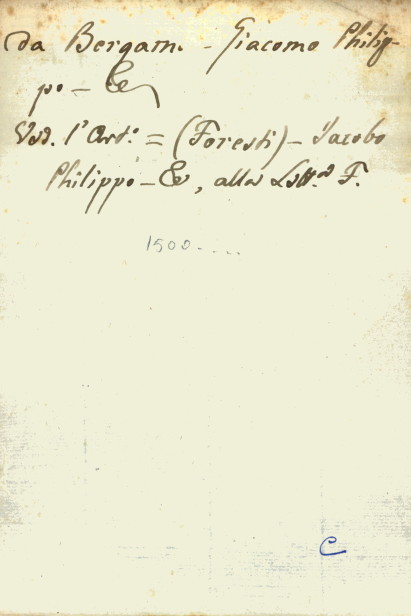 da Bergam. - Giacomo Philip-
po - &
Ved. l'Art.º = (Foresti) - Jacobo
Philippo - &, alla Lett.ª F.
1500 - ...
C